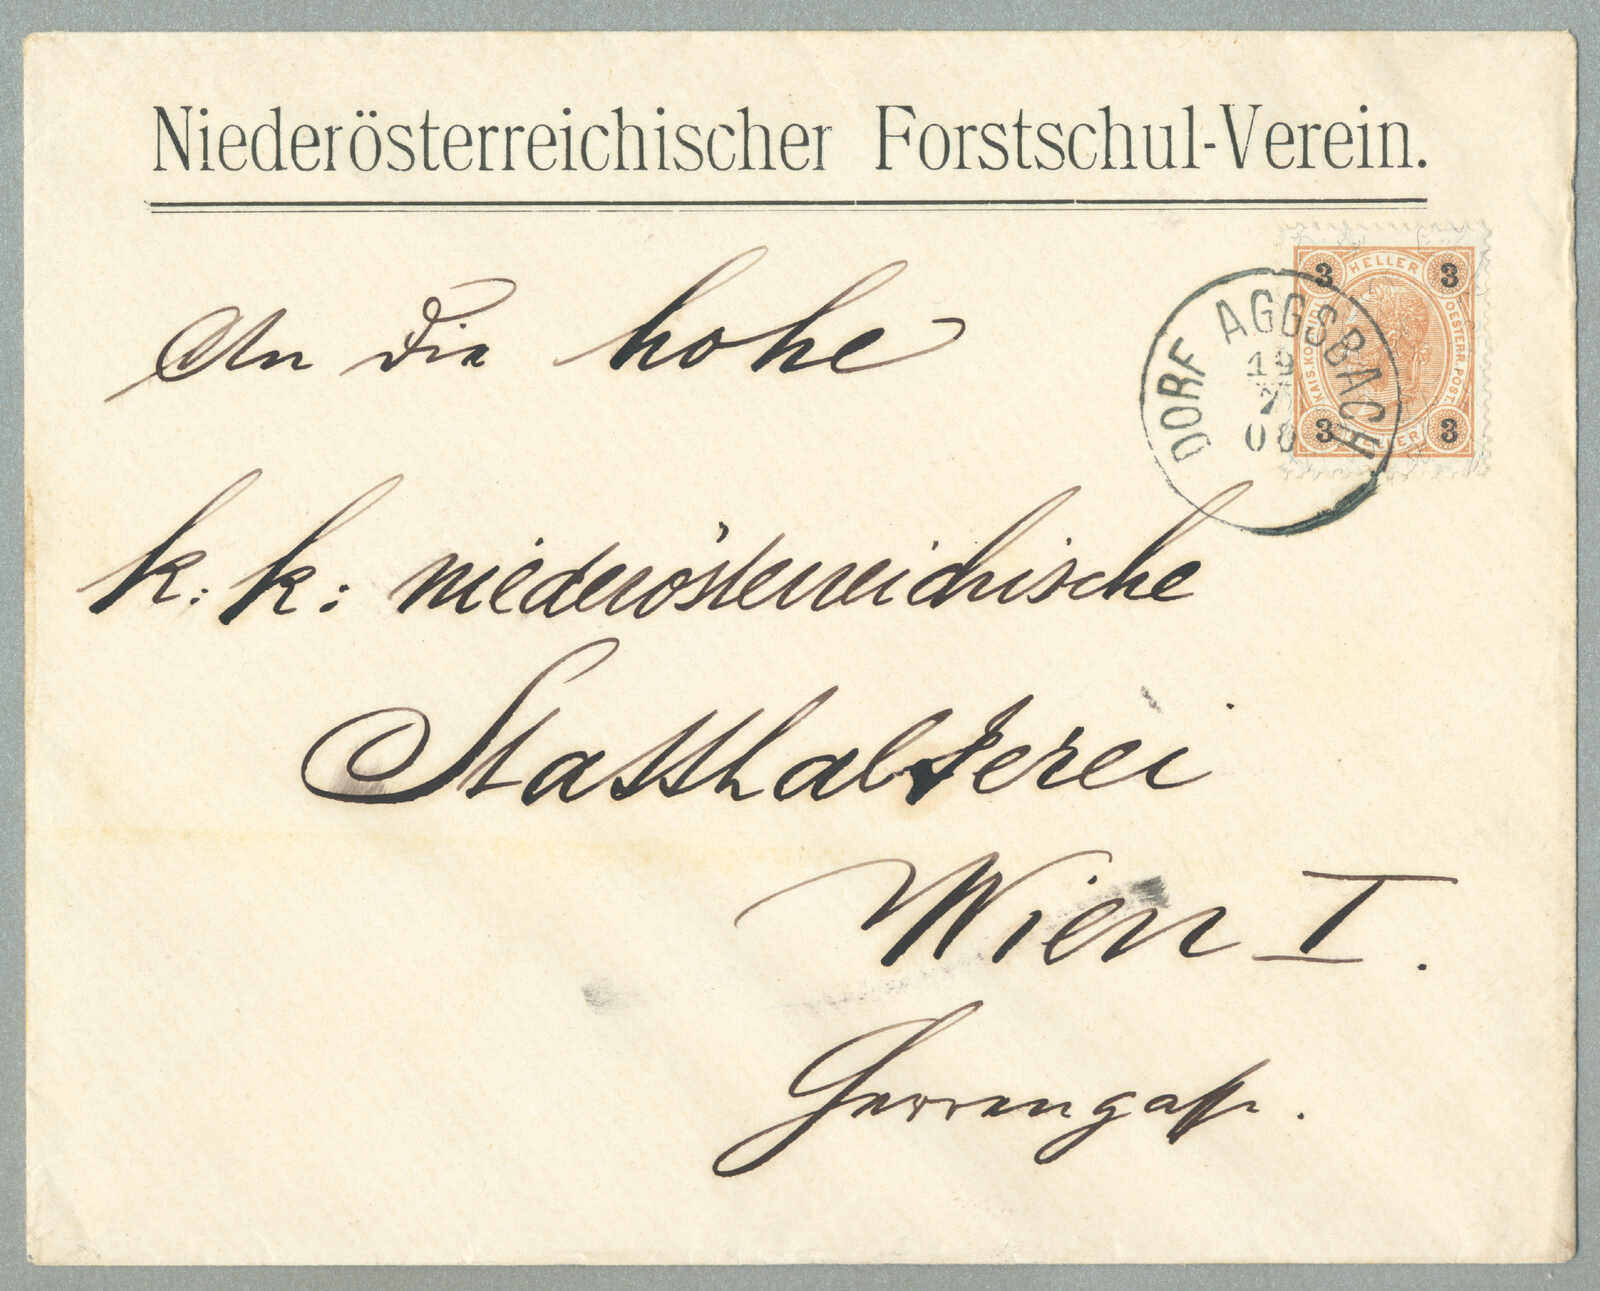 Niederösterreichischer Forstschul-Verein.
3 HELLER 3
KAIS. KÖNIGL. OESTERR. POST.
3 HELLER 3
DORF AGGSBACH
19
7
00
An die hohe
k: k: niederösterreichische
Statthalterei
Wien I.
Herrengasse.